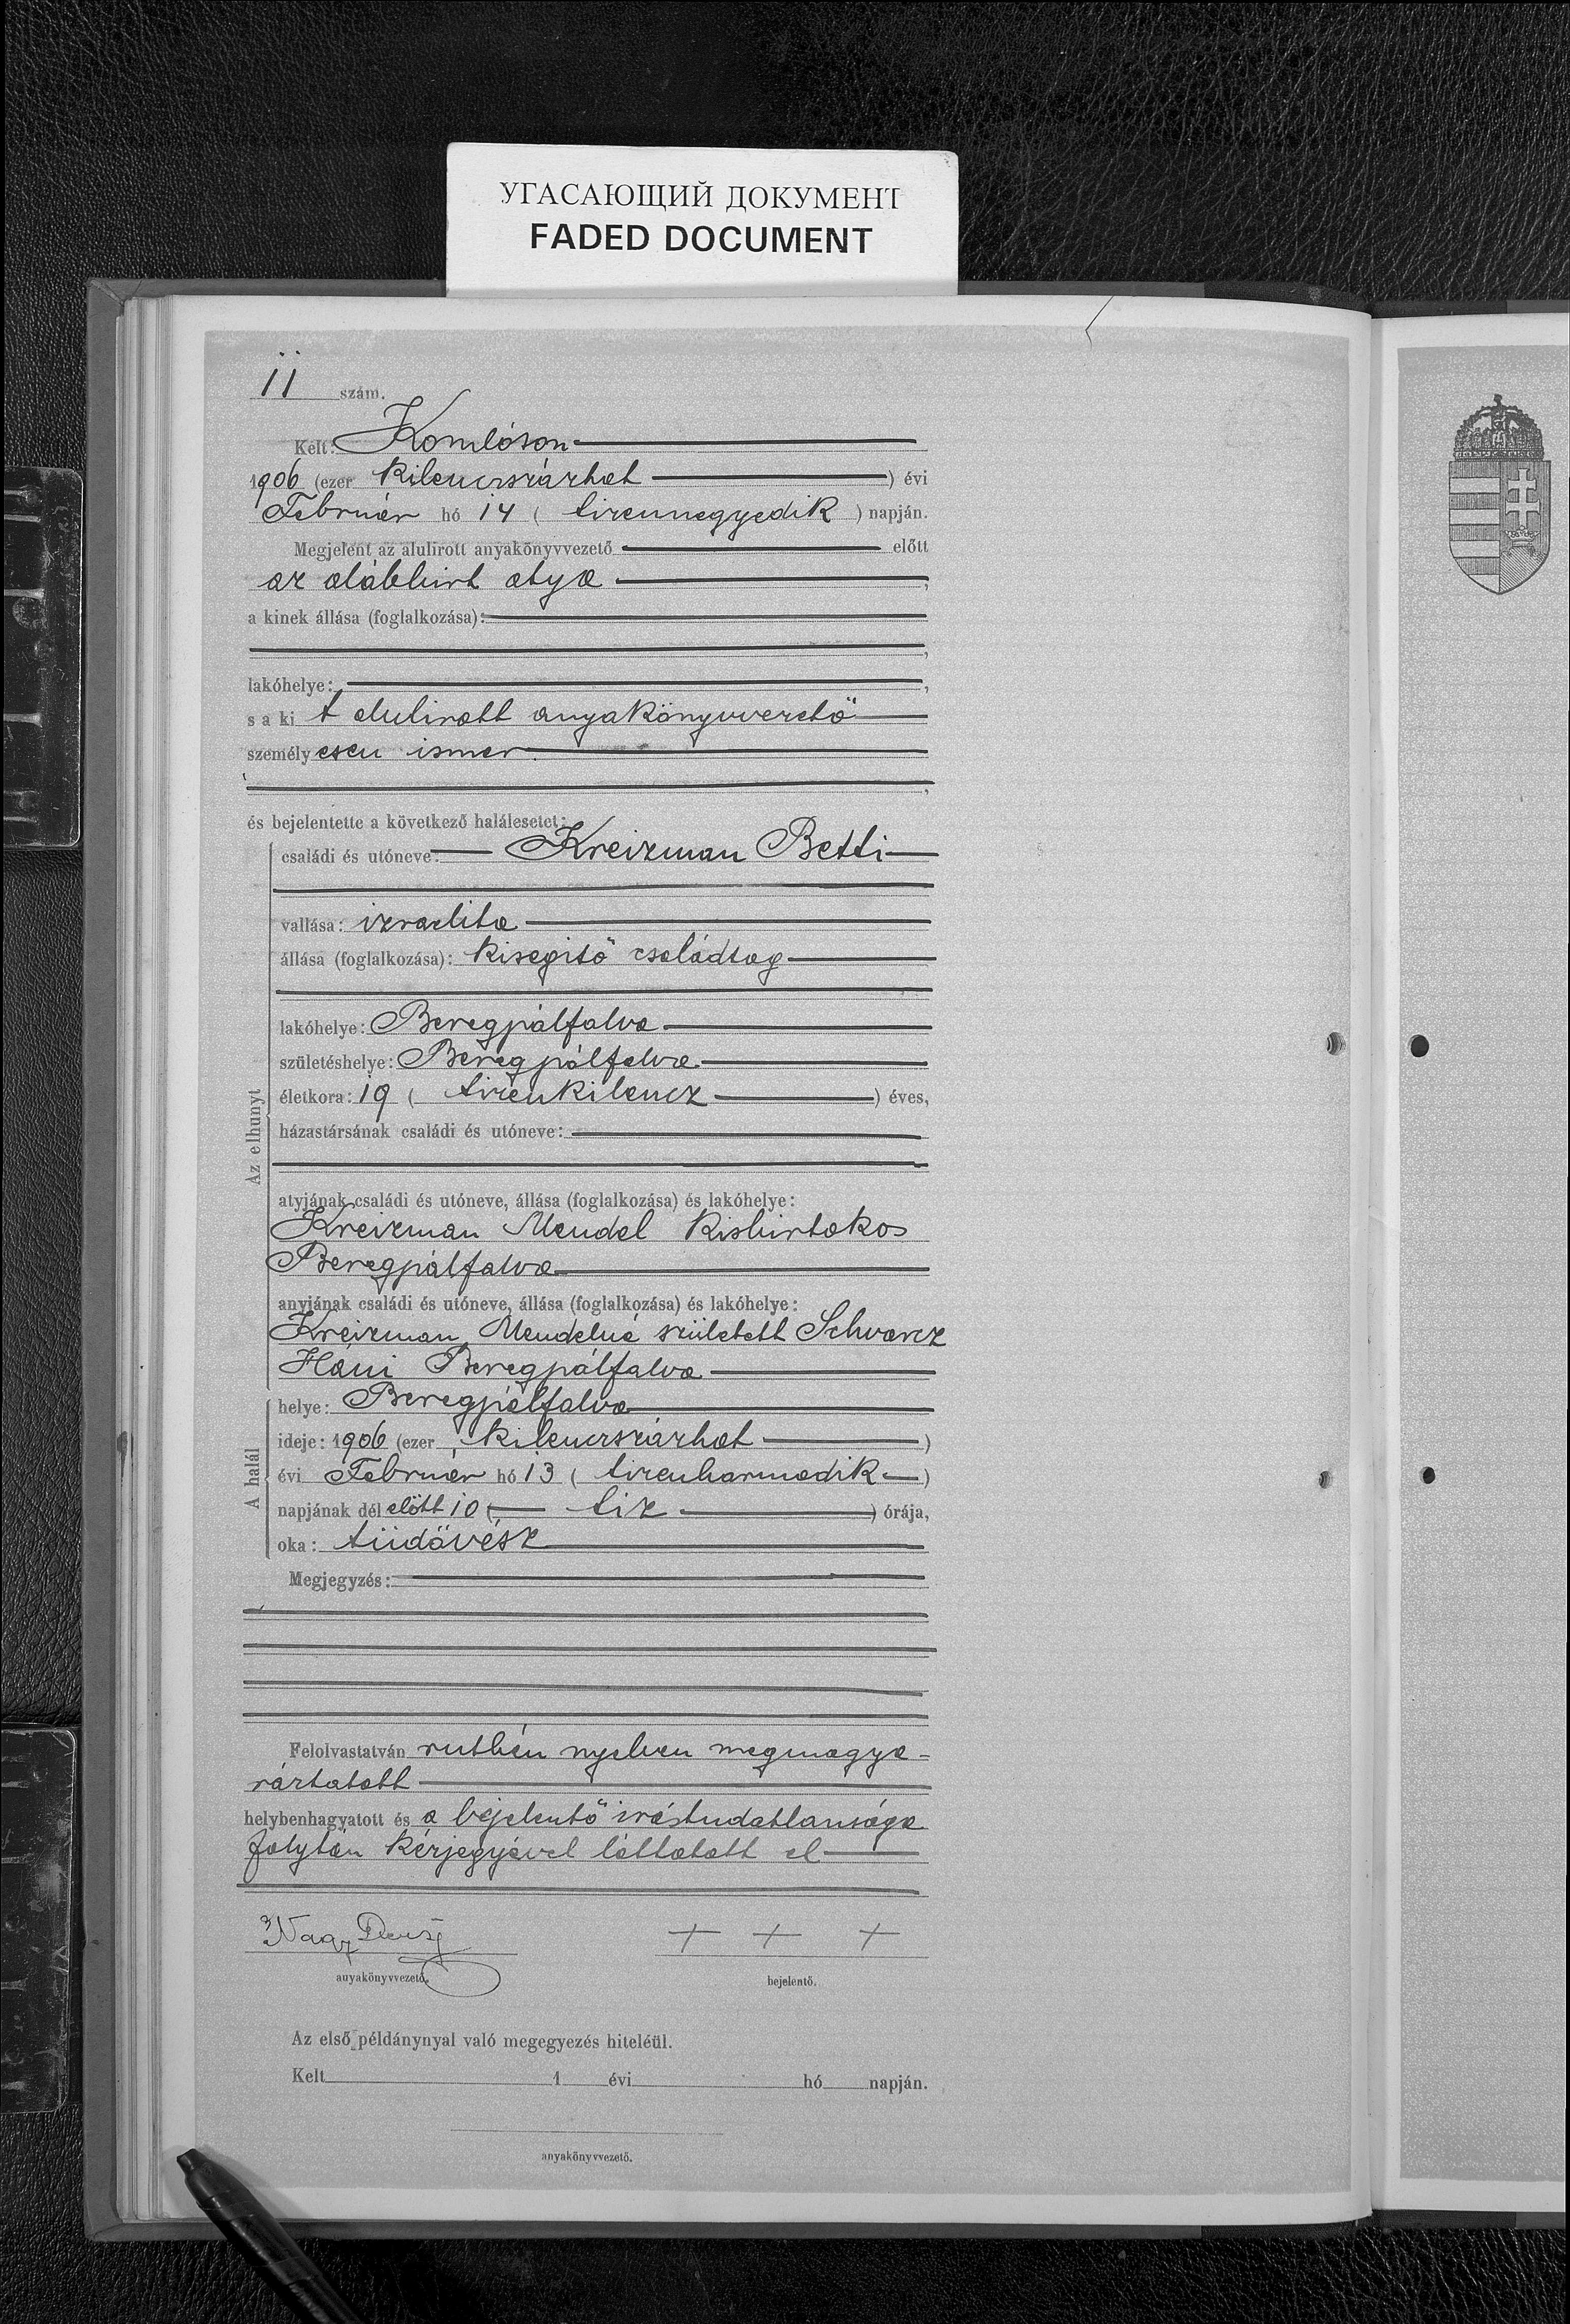 УГАСАЮЩИЙ ДОКУМЕНТ
FADED DOCUMENT
11 szám.
Kelt: Komlóson
1906 (ezer kilenczszázhat) évi
Február hó 14 (tizennegyedik) napján.
Megjelent az alulirott anyakönyvvezető előtt
az alábbirt atya,
a kinek állása (foglalkozása):
,
lakóhelye: ,
s a ki t alulirott anyakönyvvezető
személyesen ismer.
,
és bejelentette a következő halálesetet:
Az elhunyt
családi és utóneve: Kreizman Betti
vallása: izraelita
állása (foglalkozása): kisegitő családtag
lakóhelye: Beregpálfalva
születéshelye: Beregpálfalva
életkora: 19 (tizenkilencz) éves,
házastársának családi és utóneve:
atyjának családi és utóneve, állása (foglalkozása) és lakóhelye:
Kreizman Mendel kisbirtokos
Beregpálfalva
anyjának családi és utóneve, állása (foglalkozása) és lakóhelye:
Kreizman Mendelné született Schwarcz
Háni Beregpálfalva
A halál
helye: Beregpálfalva
ideje: 1906 (ezer kilenczszázhat)
évi Február hó 13 (tizenharmadik)
napjának dél előtt 10 (tiz) órája,
oka: tüdővész
Megjegyzés:
Felolvastatván ruthén nyelven megmagya-
ráztatott
helybenhagyatott és a bejelentő irástudatlansága
folytán kézjegyével láttatott el
Nagy + + +
anyakönyvvezető. bejelentő.
Az első példánynyal való megegyezés hiteléül.
Kelt 1 évi hó napján.
anyakönyvvezető.